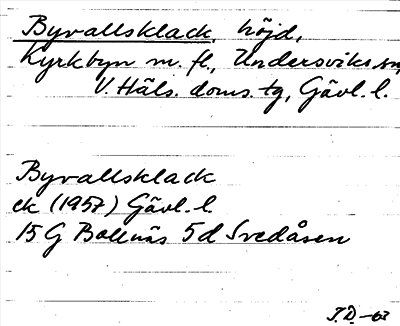 Byvallsklack, höjd,
Kyrkbyn m. fl., Undersviks sn,
V. Häls. doms. tg, Gävl. l.
Byvallsklack
ek (1957) Gävl. l.
15 G Bollnäs 5d Svedåsen
T.D.-67